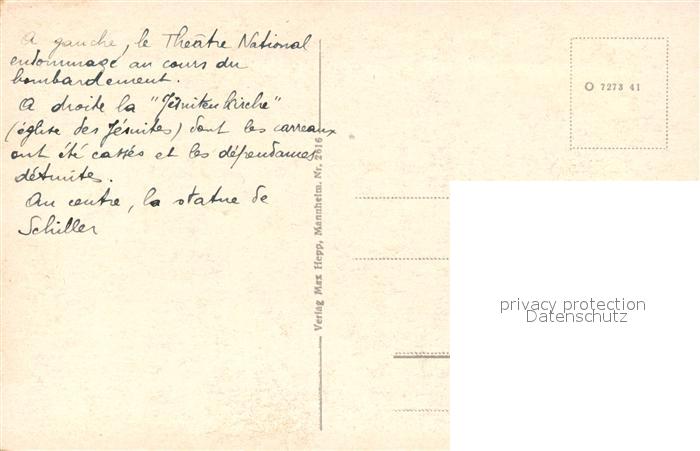 A gauche, le Théâtre National
endommagé au cours du
bombardement.
A droite la "Jésuitenkirche"
(église des Jésuites) dont les carreaux
ont été cassés et les dépendances
détruites.
Au centre, la statue de
Schiller
Verlag Max Hepp, Mannheim. Nr. 2616
O 7273 41
privacy protection
Datenschutz